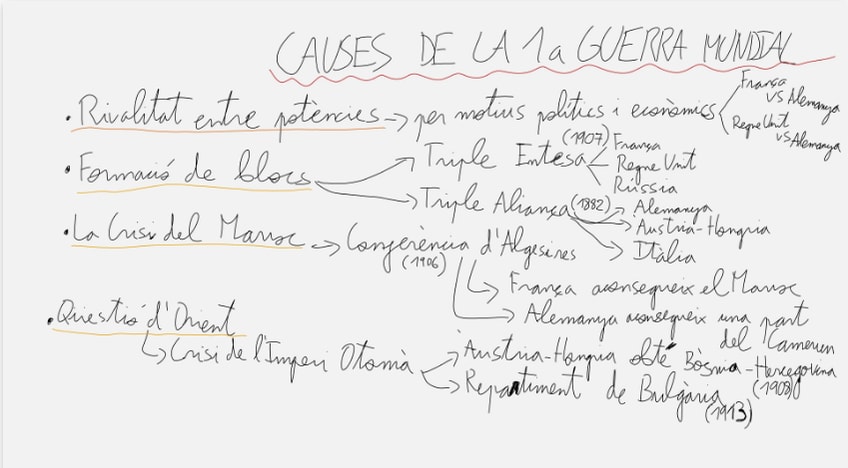 CAUSES DE LA 1a GUERRA MUNDIAL
· Rivalitat entre potències -> per motius polítics i econòmics
França
VS Alemanya
Regne Unit
VS Alemanya
· Formació de blocs
Triple Entesa (1907)
França
Regne Unit
Rússia
Triple Aliança (1882)
Alemanya
Austria-Hongria
Itàlia
· La Crisi del Marroc -> Conferència d'Algesires
(1906)
França aconsegueix el Marroc
Alemanya aconsegueix una part
del Camerun
· Qüestió d'Orient
Crisi de l'Imperi Otomà
Austria-Hongria obté Bòsnia-Hercegovina
(1908)
Repartiment de Bulgària
(1913)